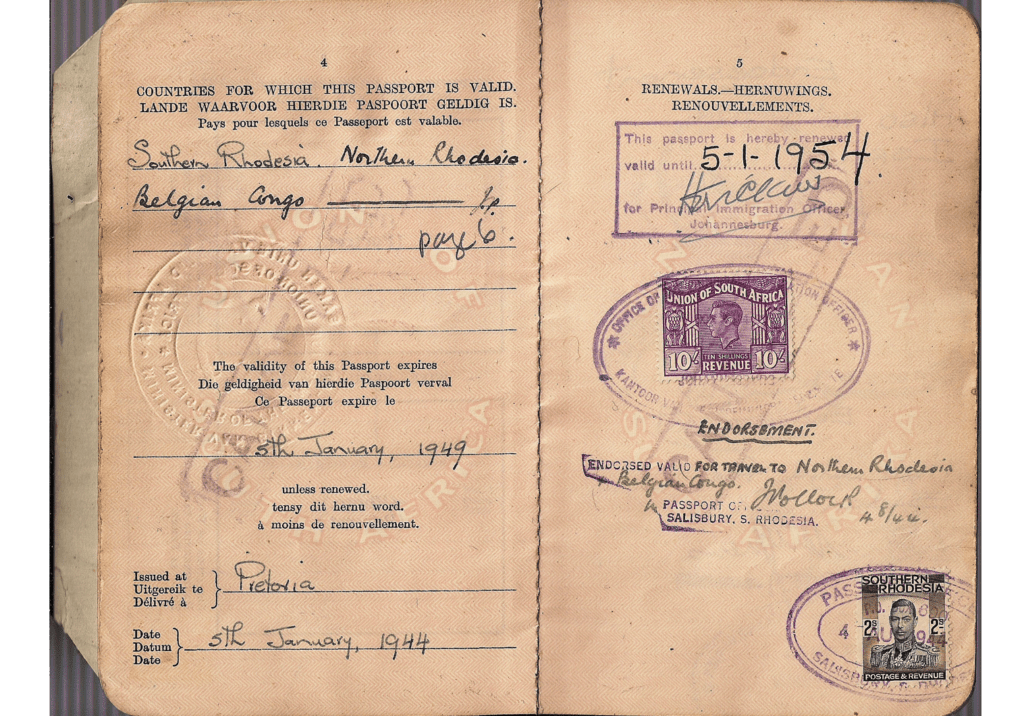 4
COUNTRIES FOR WHICH THIS PASSPORT IS VALID.
LANDE WAARVOOR HIERDIE PASPOORT GELDIG IS.
Pays pour lesquels ce Passeport est valable.
Southern Rhodesia. Northern Rhodesia.
Belgian Congo
page 6.
UNION OF
SOUTH AFRICA
The validity of this Passport expires
Die geldigheid van hierdie Paspoort verval
Ce Passeport expire le
5th January, 1949
unless renewed.
tensy dit hernu word.
à moins de renouvellement.
Issued at
Uitgereik te
Délivré à
Pretoria
Date
Datum
Date
5th January, 1944
5
RENEWALS.—HERNUWINGS.
RENOUVELLEMENTS.
This passport is hereby renewed
valid until 5-1-1954
for Principal Immigration Officer,
Johannesburg.
OFFICE OF
ATION OFFICER
UNION OF SOUTH AFRICA
10/- TEN SHILLINGS 10/-
REVENUE
KANTOOR V
ENDORSEMENT.
ENDORSED VALID FOR TRAVEL TO Northern Rhodesia
Belgian Congo.
PASSPORT
4/8/44.
SALISBURY, S. RHODESIA.
SOUTHERN
RHODESIA
PASS
2s 2s
4 AU 1944
SALISBURY, S. RHO
POSTAGE & REVENUE